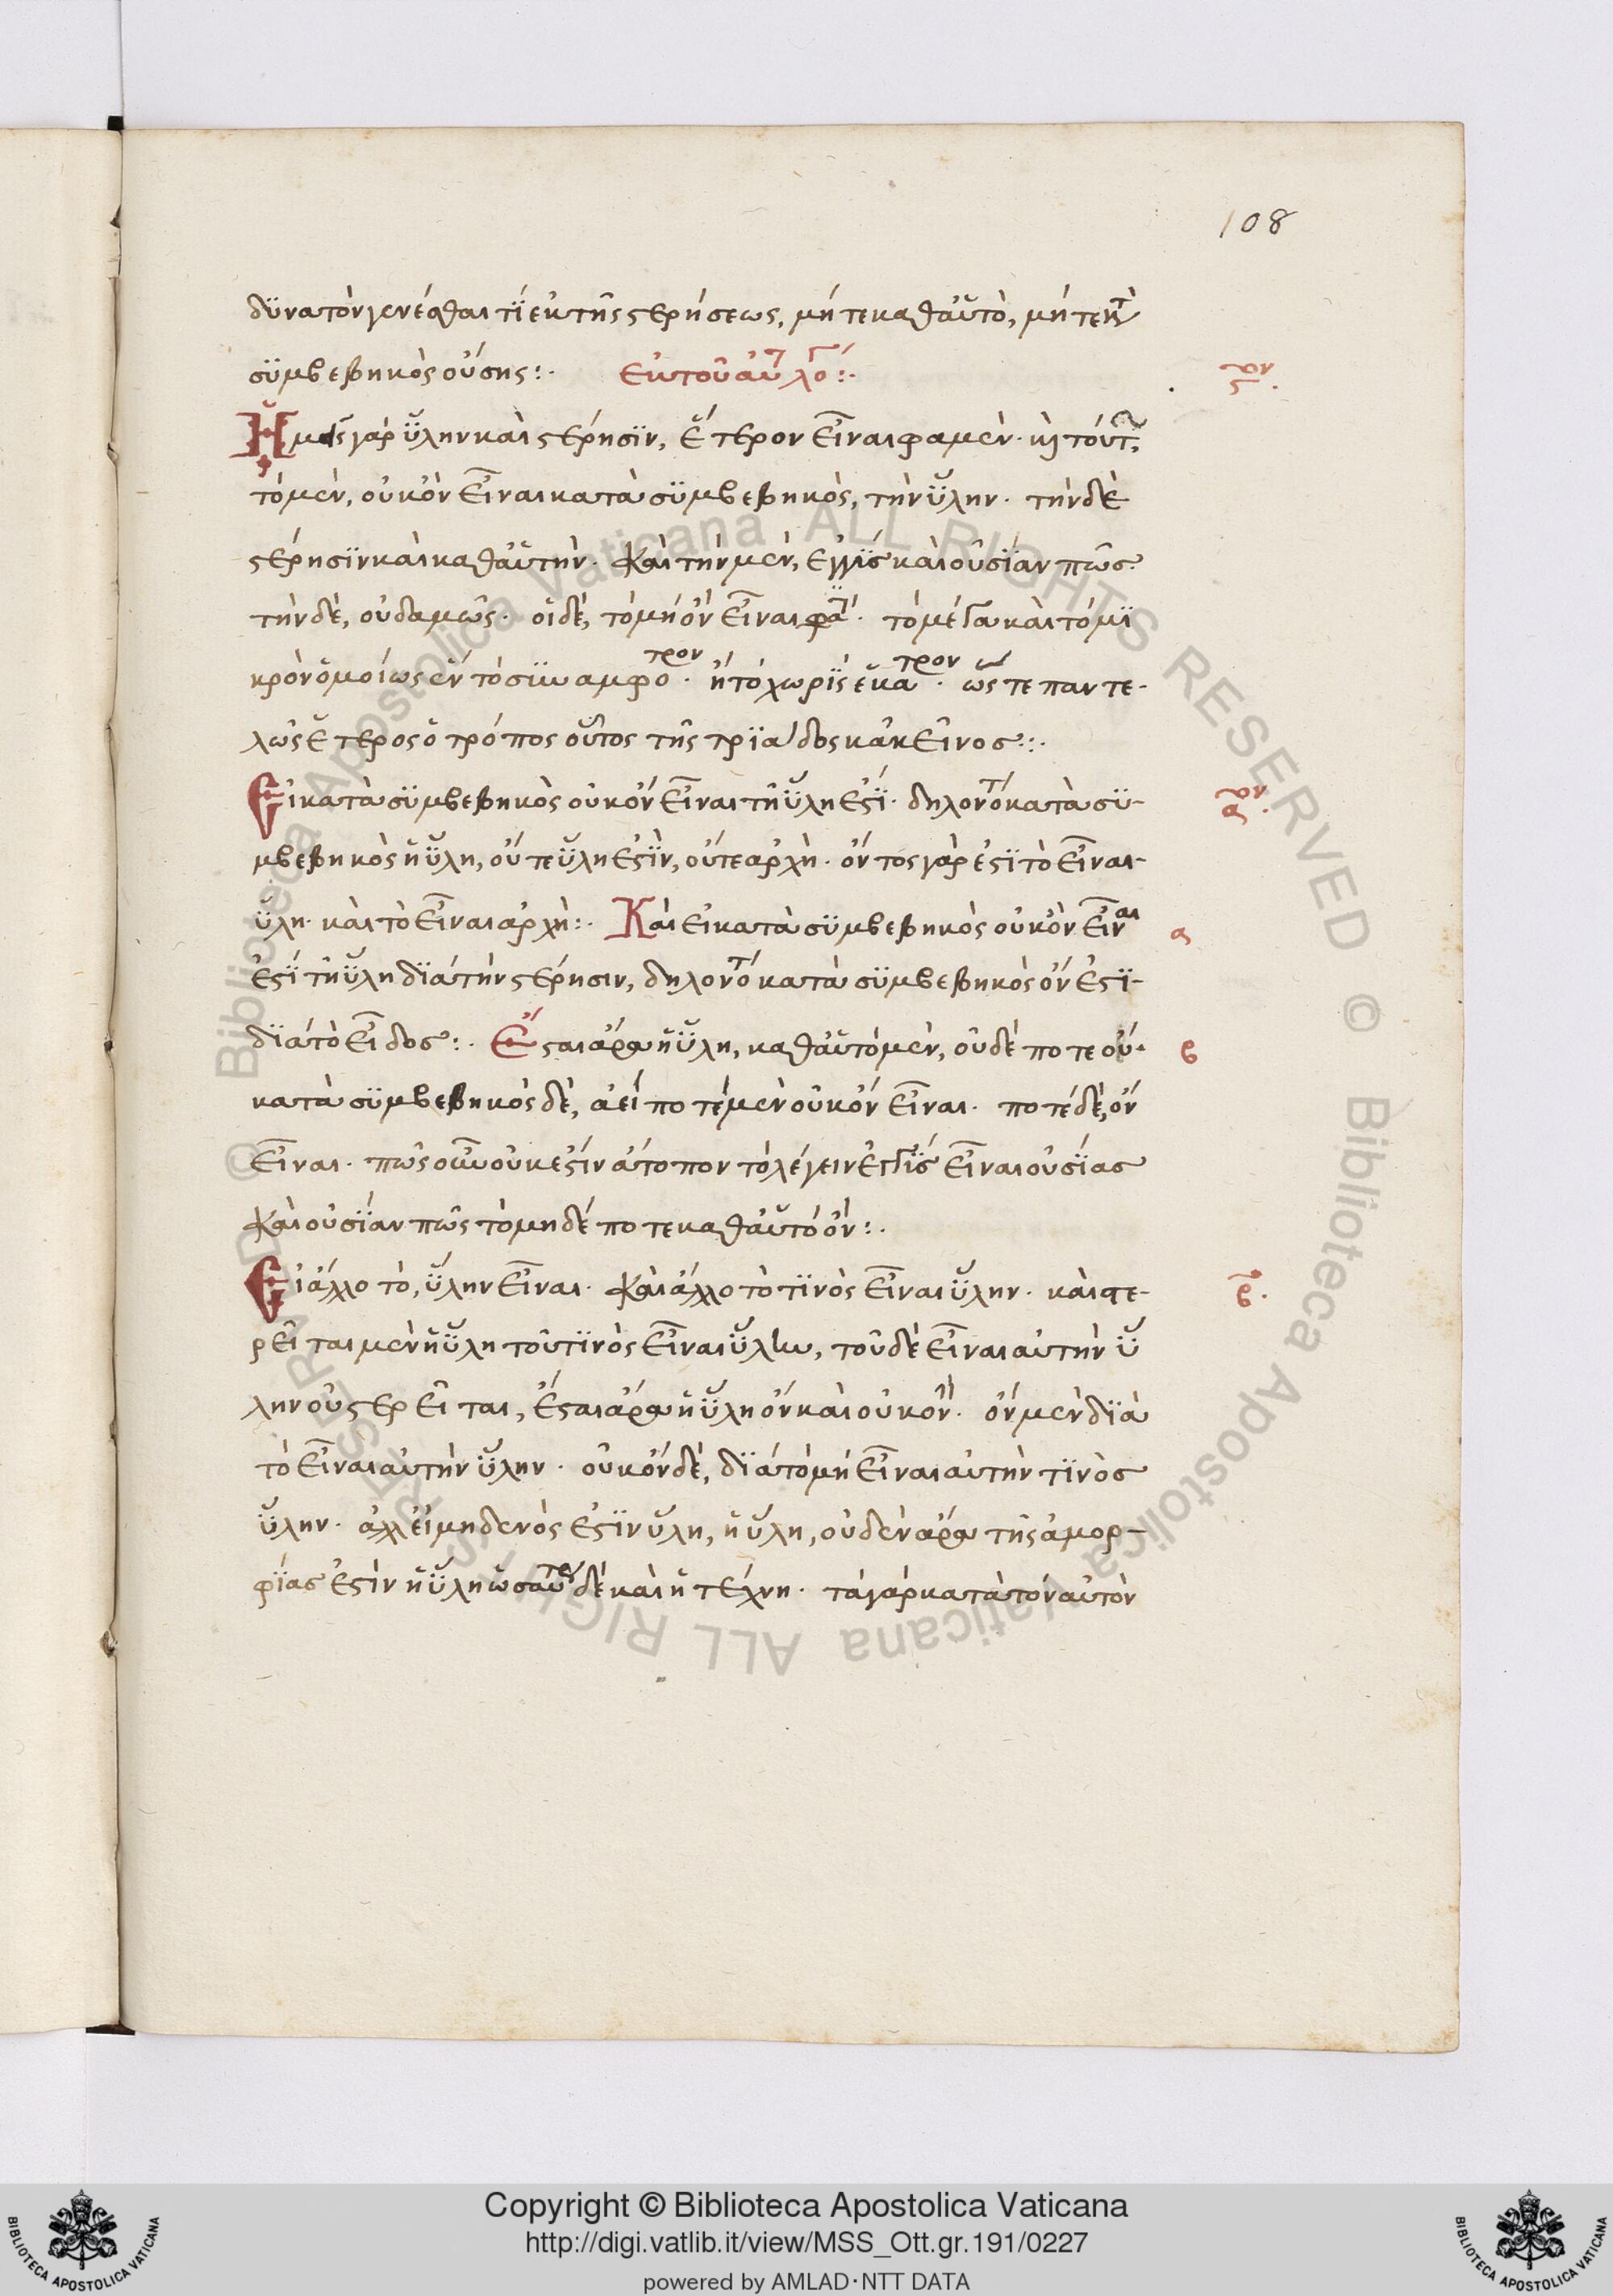 108
δϋνατὸν γενέσθαι τῒ ἐκ τῆς στερήσεως, μήτε καθ' αὑτὸ, μήτε κατὰ
σϋμβεβηκὸς οὔσης:·
Ἐκ τοῦ αὐτ λό:·
Ἡμεῖς γὰρ ὕλην καὶ στέρησϊν, ἕτερον εἶναι φαμὲν· καὶ τούτ,
τὸ μὲν, οὐκ ὂν εἶναι κατὰ σϋμβεβηκὸς, τὴν ὕλην· τὴν δὲ
στέρησϊν καὶ καθ' αὑτὴν· καὶ τὴν μὲν, ἐγγῒς καὶ οὐσΐαν πῶς·
τὴν δὲ, οὐδαμῶς· οἱ δὲ, τὸ μὴ ὂν εἶναι φα· τὸ μέγα καὶ τὸ μϊ
κρὸν ὁμοίως ἢ τὸ σϋναμφότρον· ἢ τὸ χωρῒς ἑκάτρον· ὥστε παντε-
λῶς ἕτερος ὁ τρόπος οὗτος τῆς τρϊάδος κἀκεῖνος:·
Εἰ κατὰ σϋμβεβηκὸς οὐκ ὂν εἶναι τῆ ὕλη ἐστῒ· δηλονότ κατὰ σϋ-
μβεβηκὸς ἡ ὕλη, οὔτε ὕλη ἐστῒν, οὔτε ἀρχὴ· ὄντος γάρ ἐστϊ τὸ εἶναι-
ὕλη· καὶ τὸ εἶναι ἀρχὴ:· Καὶ εἰ κατὰ σϋμβεβηκὸς οὐκ ὂν εἶναι
α
ἐστῒ τῆ ὕλη δϊὰ τὴν στέρησιν, δηλονότ κατὰ σϋμβεβηκὸς ὂν ἐστϊ-
δϊὰ τὸ εἶδος:· Ἔσται ἄρα ἡ ὕλη, καθ' αὑτὸ μὲν, οὐδέποτε ὂν·
β
κατὰ σϋμβεβηκὸς δὲ, ἀεὶ ποτὲ μὲν οὐκ ὂν εἶναι· ποτὲ δὲ, ὂν
εἶναι· πῶς οὖν οὐκ ἔστιν ἄτοπον τὸ λέγειν ἐγγῒς εἶναι οὐσΐας
καὶ οὐσΐαν πῶς τὸ μηδέποτε καθ' αὑτὸ ὂν:·
Εἰ ἄλλο τὸ, ὕλην εἶναι· καὶ ἄλλο τὸ τϊνὸς εἶναι ὕλην· καὶ στε-
ρεῖται μὲν ἡ ὕλη τοῦ τϊνὸς εἶναι ὕλην, τοῦ δὲ εἶναι αὐτὴν ὕ
λην οὐ στερεῖται, ἔσται ἄρα ἡ ὕλη ὂν καὶ οὐκ ὂν· ὂν μὲν δϊὰ
τὸ εἶναι αὐτὴν ὕλην· οὐκ ὂν δὲ, δϊὰ τὸ μὴ εἶναι αὐτὴν τϊνὸς
ὕλην· ἀλλ' εἰ μηδενὸς ἐστϊν ὕλη, ἡ ὕλη, οὐδὲν ἄρα τῆς ἀμορ-
φΐας ἐστὶν ἡ ὕλη ὡσαύτως δὲ καὶ ἡ τέχνη· τὰ γὰρ κατὰ τὸν αὐτὸν
Copyright © Biblioteca Apostolica Vaticana
http://digi.vatlib.it/view/MSS_Ott.gr.191/0227
powered by AMLAD·NTT DATA
BIBLIOTECA APOSTOLICA VATICANA
BIBLIOTECA APOSTOLICA VATICANA
© Biblioteca Apostolica Vaticana ALL RIGHTS RESERVED © Biblioteca Apostolica Vaticana ALL RIGHTS RESERVED